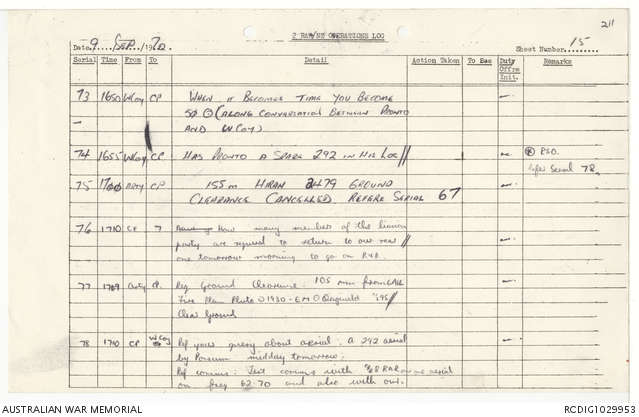 211
2 RAR/NZ OPERATIONS LOG
Date 9 / SEP / 1970. Sheet Number 15
Serial Time From To Detail Action Taken To Bde Duty Offrs Init. Remarks
73 1650 W Coy CP WHEN IT BECOMES TIME YOU BECOME
50 (A LONG CONVERSATION BETWEEN PRONTO
AND W COY)
74 1655 W Coy CP HAS PRONTO A SPARE 292 IN HIS LOC //
PSO.
Serial 78
75 1700 ARTY CP 155m HIRAN 2479 GROUND
CLEARANCE CANCELLED REFERE SERIAL 67
76 1710 CP 7 How many members of the
party are required to return to our rear //
one tomorrow morning to go on R&R.
77 1709 Arty CP. Reg Ground Clearance. 105 mm from
Fire Plan Pluto 1930 - EMO //
Clear Ground
78 1710 CP W Coy Ref your query about aerial. a 292 aerial
by Possum midday tomorrow.
Ref comms: Test comms with 8 RAR on aerial
on freq 62.70 and also with our.
AUSTRALIAN WAR MEMORIAL RCDIG1029953